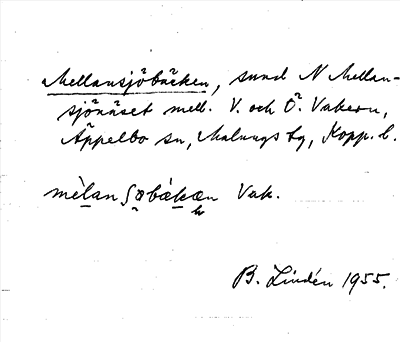 Mellansjöbäcken, sund N Mellan-
sjönäset mell. V. och Ö. Vakern,
Äppelbo sn, Malungs tg, Kopp. l.
Vak.
B. Lindén 1955.